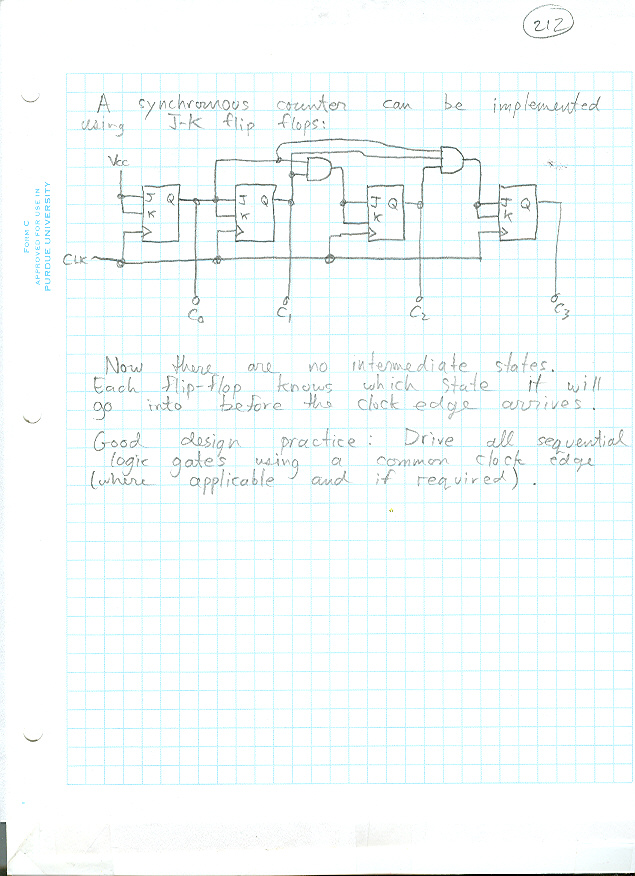 212
A synchronous counter can be implemented
using J-K flip flops:
Vcc
J Q
K
J Q
K
J Q
K
J Q
K
CLK
C0
C1
C2
C3
Now there are no intermediate states.
Each flip-flop knows which state it will
go into before the clock edge arrives.
Good design practice: Drive all sequential
logic gates using a common clock edge
(where applicable and if required).
FORM C
APPROVED FOR USE IN
PURDUE UNIVERSITY